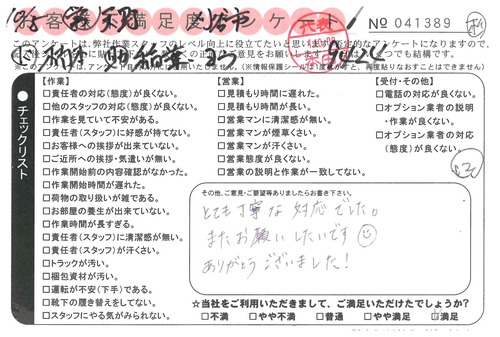 お客様満足度アンケート
No 041389
このアンケートは、弊社作業スタッフのレベル向上に役立てたいと思います。
チェックリスト
【作業】
□責任者の対応(態度)が良くない。
□他のスタッフの対応(態度)が良くない。
□作業を見ていて不安がある。
□責任者(スタッフ)に好感が持てない。
□お客様への挨拶が出来ていない。
□ご近所への挨拶・気遣いが無い。
□作業開始前の内容確認がなかった。
□作業開始時間が遅れた。
□荷物の取り扱いが雑である。
□お部屋の養生が出来ていない。
□作業時間が長すぎる。
□責任者(スタッフ)に清潔感が無い。
□責任者(スタッフ)が汗くさい。
□トラックが汚い。
□梱包資材が汚い。
□運転が不安(下手)である。
□靴下の履き替えをしてない。
□スタッフにやる気がみられない。
【営業】
□見積もり時間に遅れた。
□見積もり時間が長い。
□営業マンに清潔感が無い。
□営業マンが煙草くさい。
□営業マンが汗くさい。
□営業態度が良くない。
□営業の説明と作業が一致してない。
【受付・その他】
□電話の対応が良くない。
□オプション業者の説明
・作業が良くない。
□オプション業者の対応
(態度)が良くない。
その他、ご意見・ご要望等ありましたらお書き下さい。
とても丁寧な対応でした。
またお願いしたいです
ありがとうございました!
☆当社をご利用いただきまして、ご満足いただけたでしょうか?
□不満 □やや不満 □普通 □やや満足 ☑満足